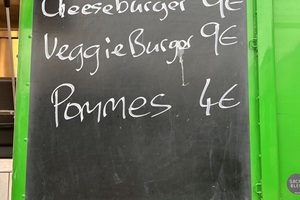 Cheeseburger 9€
VeggieBurger 9€
Pommes 4€